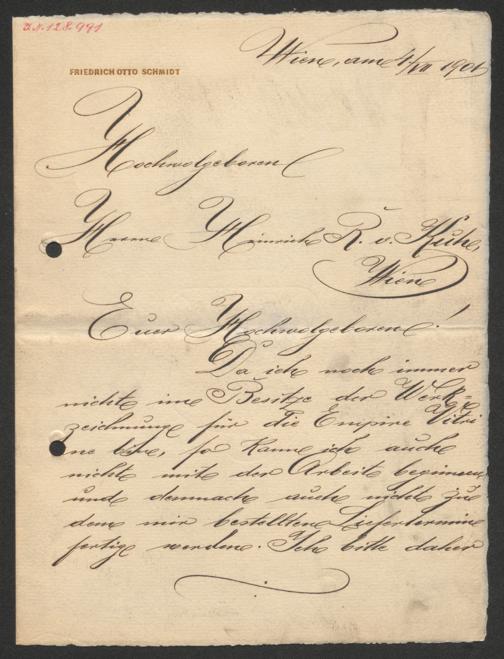 I.N. 128.991
Wien, am 4/VII 1901
FRIEDRICH OTTO SCHMIDT
Hochwolgeboren
Herrn Heinrich R. v. Kuh,
Wien
Euer Hochwolgeboren!
Da ich noch immer
nicht im Besitze der Werk=
zeichnung für die Empire Vitri
ne bin, so kann ich auch
nicht mit der Arbeit beginnen
und demnach auch nicht zu
dem mir bestellten Liefertermine
fertig werden. Ich bitte daher